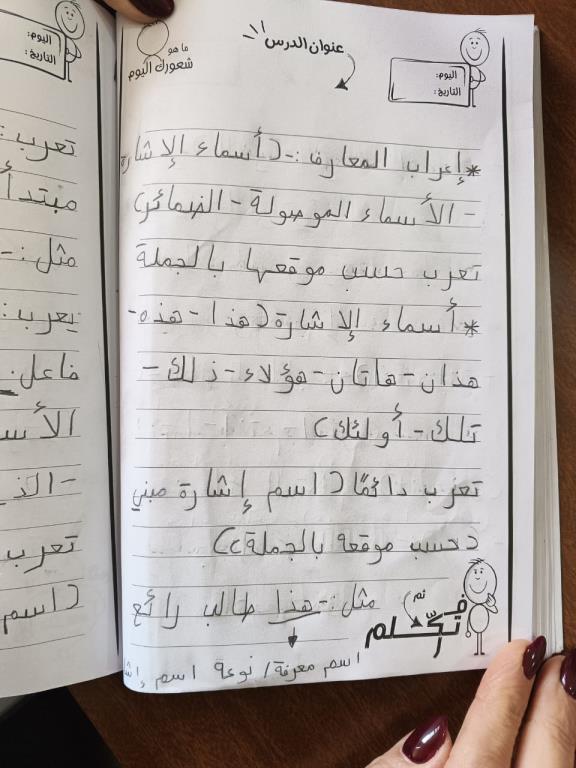 عنوان الدرس
ما هو
شعورك اليوم
اليوم:
التاريخ:
*إعراب المعارف:- (أسماء الإشارة
- الأسماء الموصولة - الضمائر)
تعرب حسب موقعها بالجملة
*أسماء الإشارة (هذا - هذه -
هذان - هاتان - هؤلاء - ذلك -
تلك - أولئك)
تعرب دائمًا (اسم إشارة مبني
حسب موقعه بالجملة)
مثل:- هذا طالب رائع
اسم معرفة/ نوعة اسم إش
ثم
اليوم:
التاريخ:
تعرب:
مبتدأ
مثل:-
يعرب:
فاعل.
الأس
- الذي
تعرب
(اسم